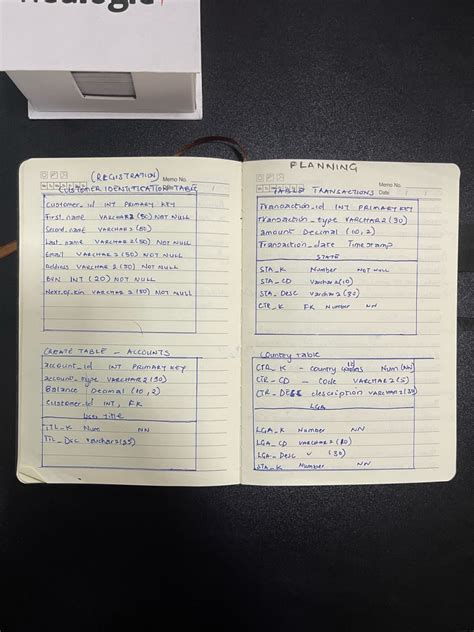 Memo No.
(REGISTRATION)
CUSTOMER IDENTIFICATION TABLE
Customer_id INT PRIMARY KEY
First_name VARCHAR2 (50) NOT NULL
Second_name VARCHAR2 (50)
Last_name VARCHAR2 (50) NOT NULL
Email VARCHAR2 (50) NOT NULL
Address VARCHAR2 (30) NOT NULL
BVN INT (20) NOT NULL
Next.of.kin VARCHAR2 (50) NOT NULL
CREATE TABLE - ACCOUNTS
account_id INT PRIMARY KEY
account_type VARCHAR2 (30)
Balance Decimal (10,2)
Customer_id INT, FK
Title
TTL_K Num NN
TTL_Dsc varchar2(35)
PLANNING
Memo No.
Date
TABLE TRANSACTIONS
Transaction_id INT PRIMARY KEY
Transaction_type VARCHAR2 (30)
amount Decimal (10,2)
Transaction_date Timestamp
STATE
STA_K Number NOT NULL
STA_CD Varchar2(10)
STA_DESC varchar2 (30)
CTR_K FK Number NN
Country Table
CTR_K - country Num (NN)
CTR_CD - Code VARCHAR2(5)
CTR_DESC description VARCHAR2(30)
LGA
LGA_K Number NN
LGA_CD VARCHAR2 (10)
LGA_DESC V (30)
STA_K Number NN